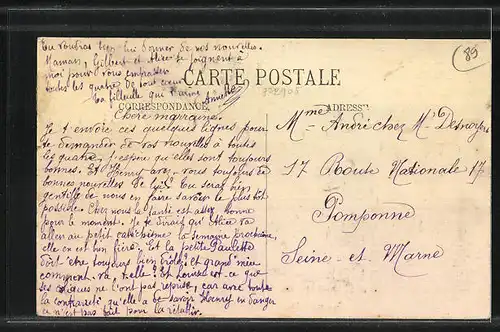 Tu voudras bien lui donner de nos nouvelles.
Maman, Gilbert et Alice se joignent à
moi pour vous embrasser
toutes les quatre de tout cœur
Ta filleule qui t'aime
Annette
89
CARTE POSTALE
CORRESPONDANCE
ADRESSE
Chère marraine,
Je t'envoie ces quelques lignes pour
te demander de vos nouvelles à toutes
les quatre. J'espère qu'elles sont toujours
bonnes. Et Henry avez-vous toujours de
bonnes nouvelles de lui. Tu serais bien
gentille de nous en faire savoir le plus tôt
possible. Chez nous la santé est assez bonne
pour le moment. Je te dirais qu'Alice va
aller au petit catéchisme la semaine prochaine,
elle en est bien fière. Et la petite Paulette
doit être toujours bien drôle et grand'mère
comment va-t-elle? Et Louise est-ce que
ses coliques ne l'ont pas reprise, car avec toute
la contrariété qu'elle a de savoir Henry en danger
ce n'est pas fait pour la rétablir.
Mme André chez M. Desnoyers
17 Route Nationale 17
Pomponne
Seine-et-Marne